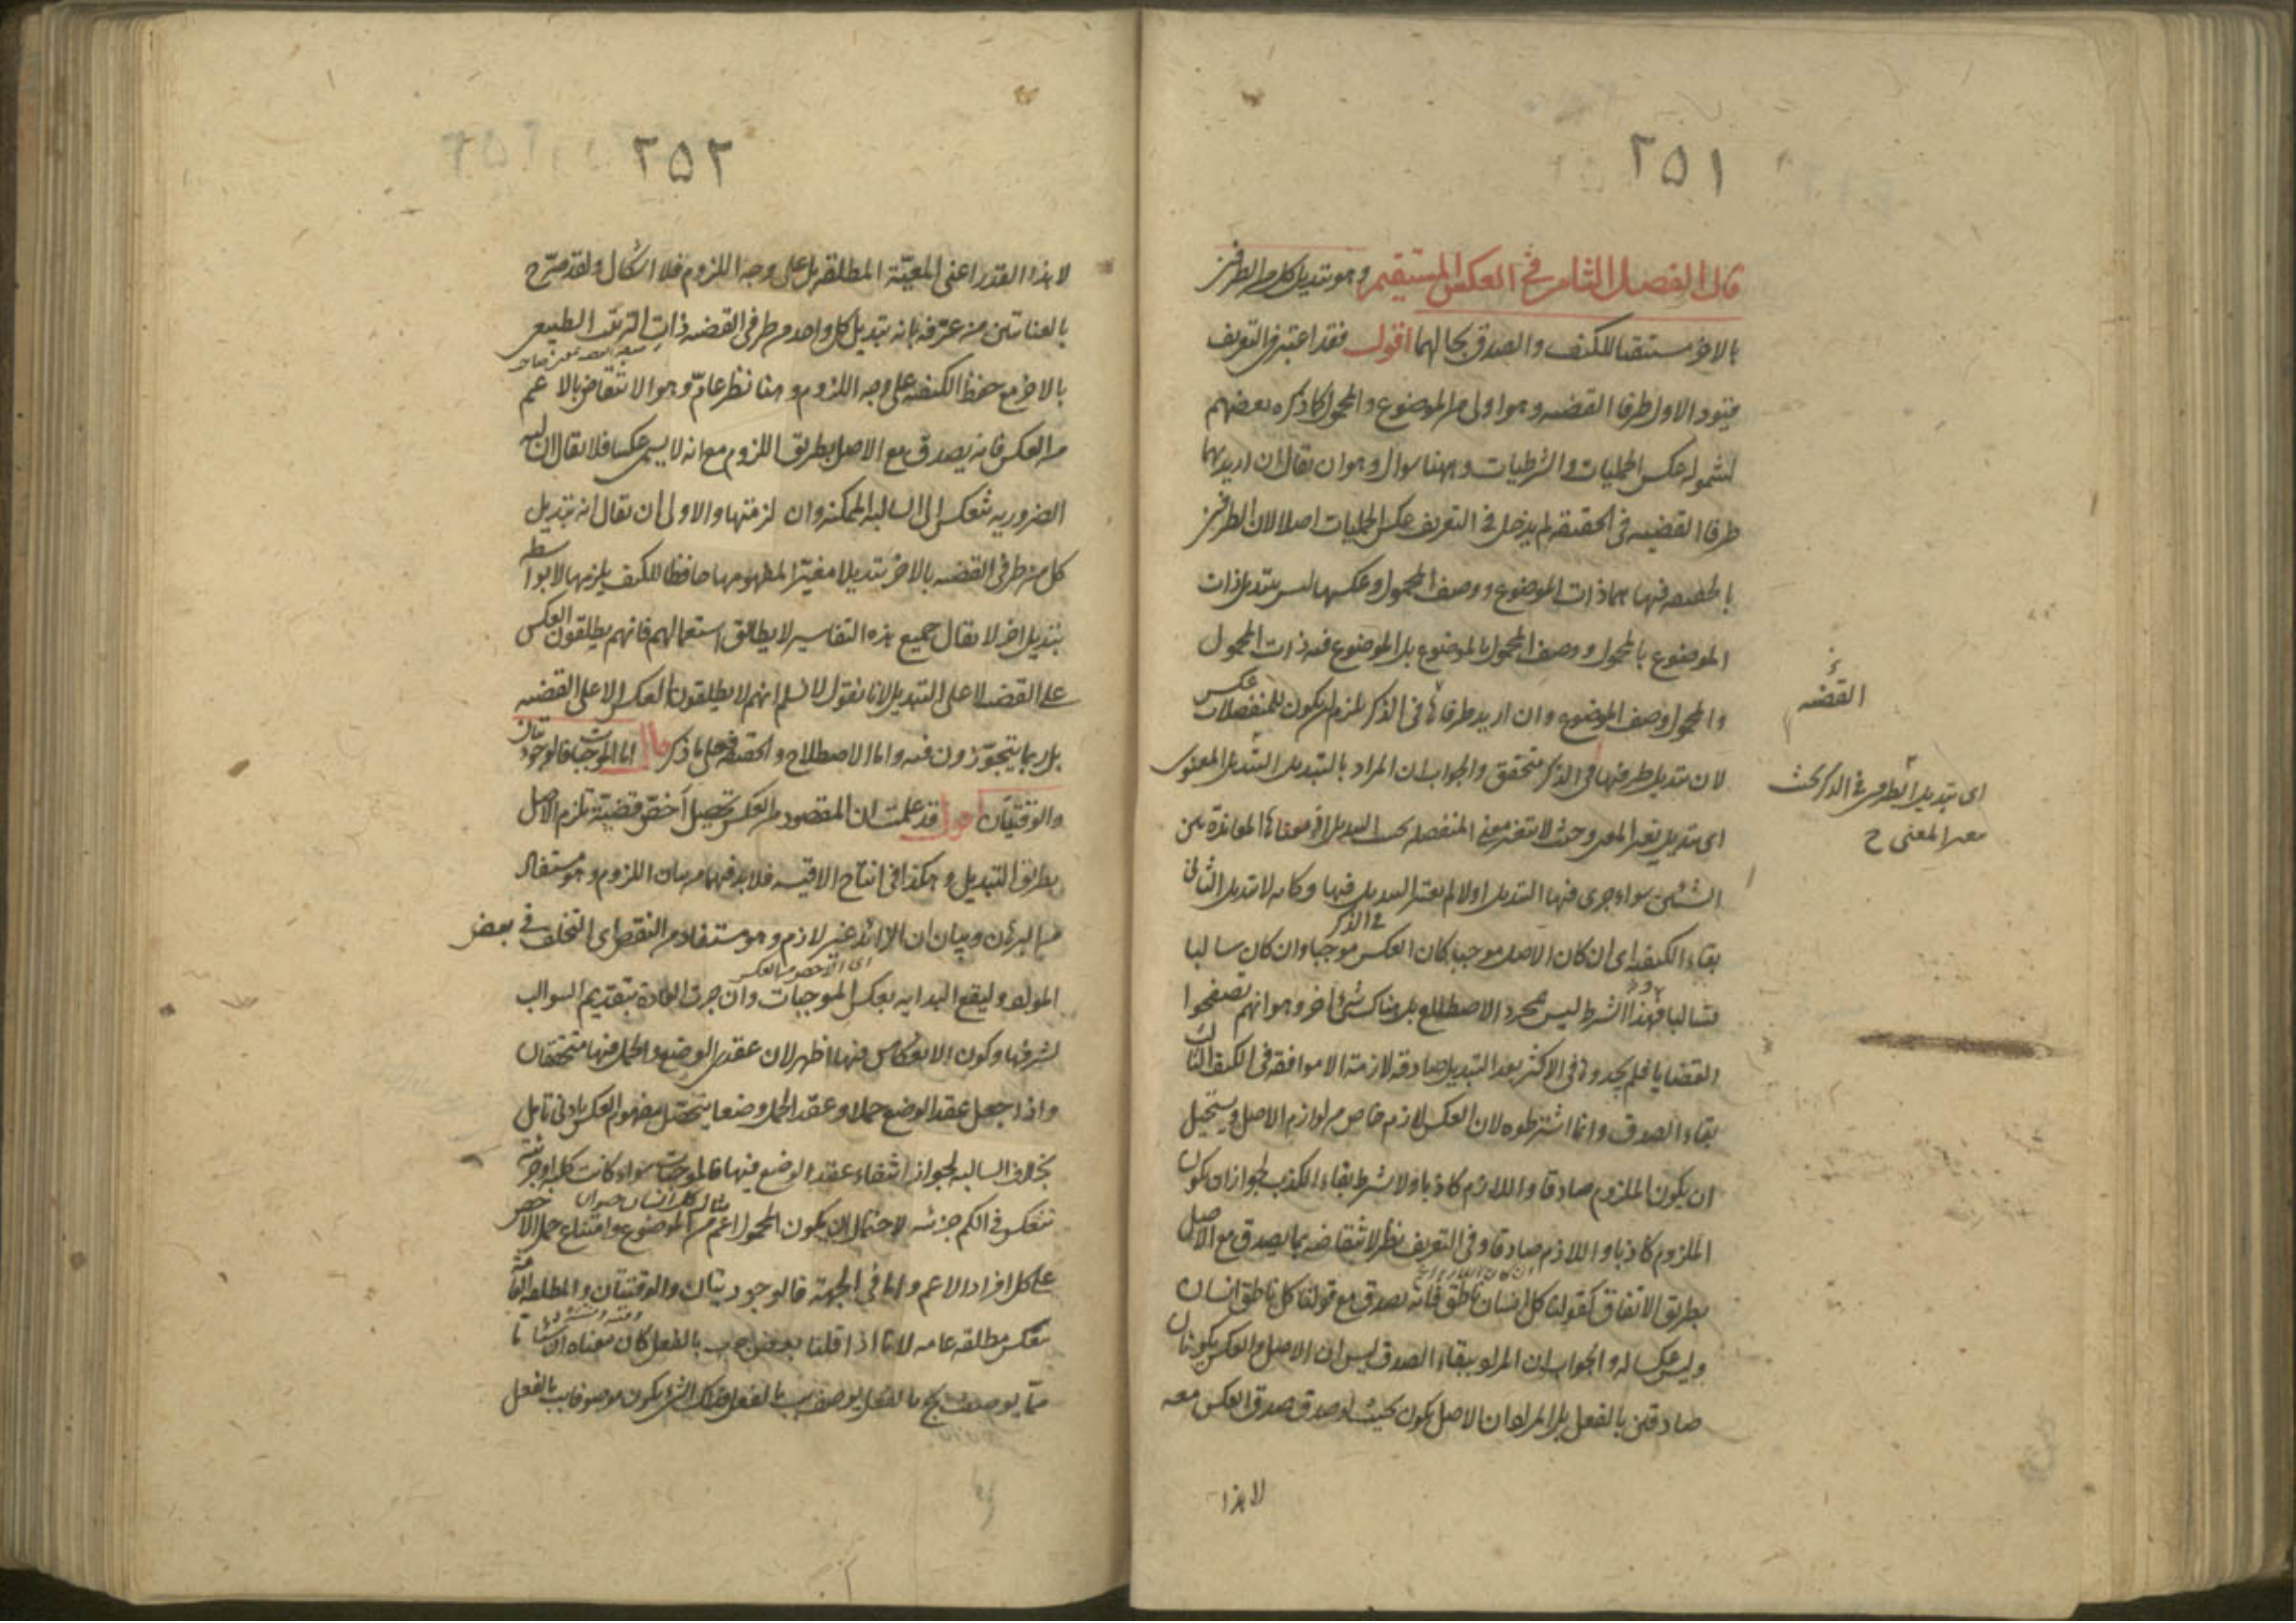 ٢٥١
قال الفصل الثامن فى العكس المستقيم وهو تبديل كل من الطرفين
بالاخر مستبقيا للكيف والصدق بحالهما اقول فقد اعتبر فى التعريف
قيود الاول طرفا القضيه وهو اولى من الموضوع والمحمول كما ذكره بعضهم
لشموله عكس الحمليات والشرطيات وههنا سوال وهو ان يقال ان اريد بهما
طرفا القضيه فى الحقيقه لم يدخل فى التعريف عكس الحمليات اصلا لان الطرفين
بالحقيقه فيها هما ذات الموضوع ووصف المحمول وعكسها ليس تبديل ذات
الموضوع بالمحمول ووصف المحمول بالموضوع بل الموضوع فيه ذات المحمول
والمحمول وصف الموضوع وان اريد طرفاها فى الذكر يلزم ان يكون للمنفصلات عكس
القضيه
لان تبديل طرفيها فى الذكر متحقق والجواب ان المراد بالتبديل التبديل المعنوى
اى تبديل الطرفين فى الذكر بحيث
المعنى ح
اى تبديل يغير المعنى وحيث لا يتغير معنى المنفصله بحسب التبديل اذ معناها المعاندة بين
الشيئين سواء جرى فيها التبديل اولا لم يعتبر التبديل فيها وكانه لا تبديل الثانى
فى الذكر
بقاء الكيفيه اى ان كان الاصل موجبا كان العكس موجبا وان كان سالبا
فسالبا وهذا الشرط ليس بمجرد الاصطلاح بل هناك شئ اخر وهو انهم تصفحوا
القضايا فلم يجدوها فى الاكثر بعد التبديل صادقه لازمة الا موافقه فى الكيف الثالث
بقاء الصدق وانما اشترطوه لان العكس لازم خاص من لوازم الاصل ويستحيل
ان يكون الملزوم صادقا واللازم كاذبا ولا شرط بقاء الكذب لجواز ان يكون
الملزوم كاذبا واللازم صادقا وفى التعريف نظر لانتقاضه بما يصدق مع الاصل
بطريق الاتفاق كقولنا كل انسان ناطق فانه يصدق مع قولنا كل ناطق انسان
وليس عكسا له والجواب ان المراد ببقاء الصدق ليس ان الاصل والعكس يكونان
صادقين بالفعل بل المراد ان الاصل يكون بحيث لو صدق صدق العكس معه
لا بهذا
٢٥٢
لا بهذا القدر اعنى المعيّة المطلقه بل على وجه اللزوم فلا اشكال ولقد صرّح
بالعنايتين من عرّفه بانه تبديل كل واحد من طرفى القضيه ذات الترتيب الطبيعى
بالاخر مع حفظ الكيفيه على وجه اللزوم وهنا نظر عامّ وهو الانتقاض بالاعم
من العكس فانه يصدق مع الاصل بطريق اللزوم مع انه لا يسمى عكسا فلا يقال ان السالبه
الضروريه تنعكس الى السالبه الممكنه وان لزمتها والاولى ان يقال انه تبديل
كل من طرفى القضيه بالاخر تبديلا مغيّرا لمفهومها حافظا للكيف يلزمها لا بواسطه
تبديل اخر لا يقال جميع هذه التفاسير لا يطابق استعمالهم فانهم يطلقون العكس
على القضيه لا على التبديل لانا نقول لا نسلم انهم لا يطلقون العكس الا على القضيه
بل ربما يتجوّزون فيه واما الاصطلاح والحقيقه فعلى ما ذكر قال اما الموجبات فالوجوديتان
والوقتيتان اقول قد علمت ان المقصود من العكس تحصيل اخصّ قضية تلزم الاصل
بطريق التبديل وهكذا فى انتاج الاقيسه فلا بد فيهما من بيان اللزوم وهو مستفاد
من البرهان وبيان ان الزائد غير لازم وهو مستفاد من النقض اى التخلف فى بعض
اى الاخص من العكس
المواد وليقع البدايه بعكس الموجبات وان جرت العادة بتقديم السوالب
لشرفها وكون الانعكاس فيها اظهر لان عقدى الوضع والحمل فيها متحققان
واذا جعل عقد الوضع حملا وعقد الحمل وضعا يتحصّل مفهوم العكس بادنى تامل
بخلاف السالبه لجواز انتفاء عقد الوضع فيها فالموجبات سواء كانت كليه او جزئيه
مثال كل انسان حيوان
تنعكس فى الكم جزئيه لاحتمال ان يكون المحمول اعم من الموضوع وامتناع حمل الاخص
على كل افراد الاعم واما فى الجهة فالوجوديتان والوقتيتان والمطلقه العامة
تنعكس مطلقه عامه لانا اذا قلنا بعض ج ب بالفعل كان معناه ان شيئا ما
ممّا يوصف بج بالفعل يوصف بب بالفعل فذلك الشئ يكون موصوفا بب بالفعل